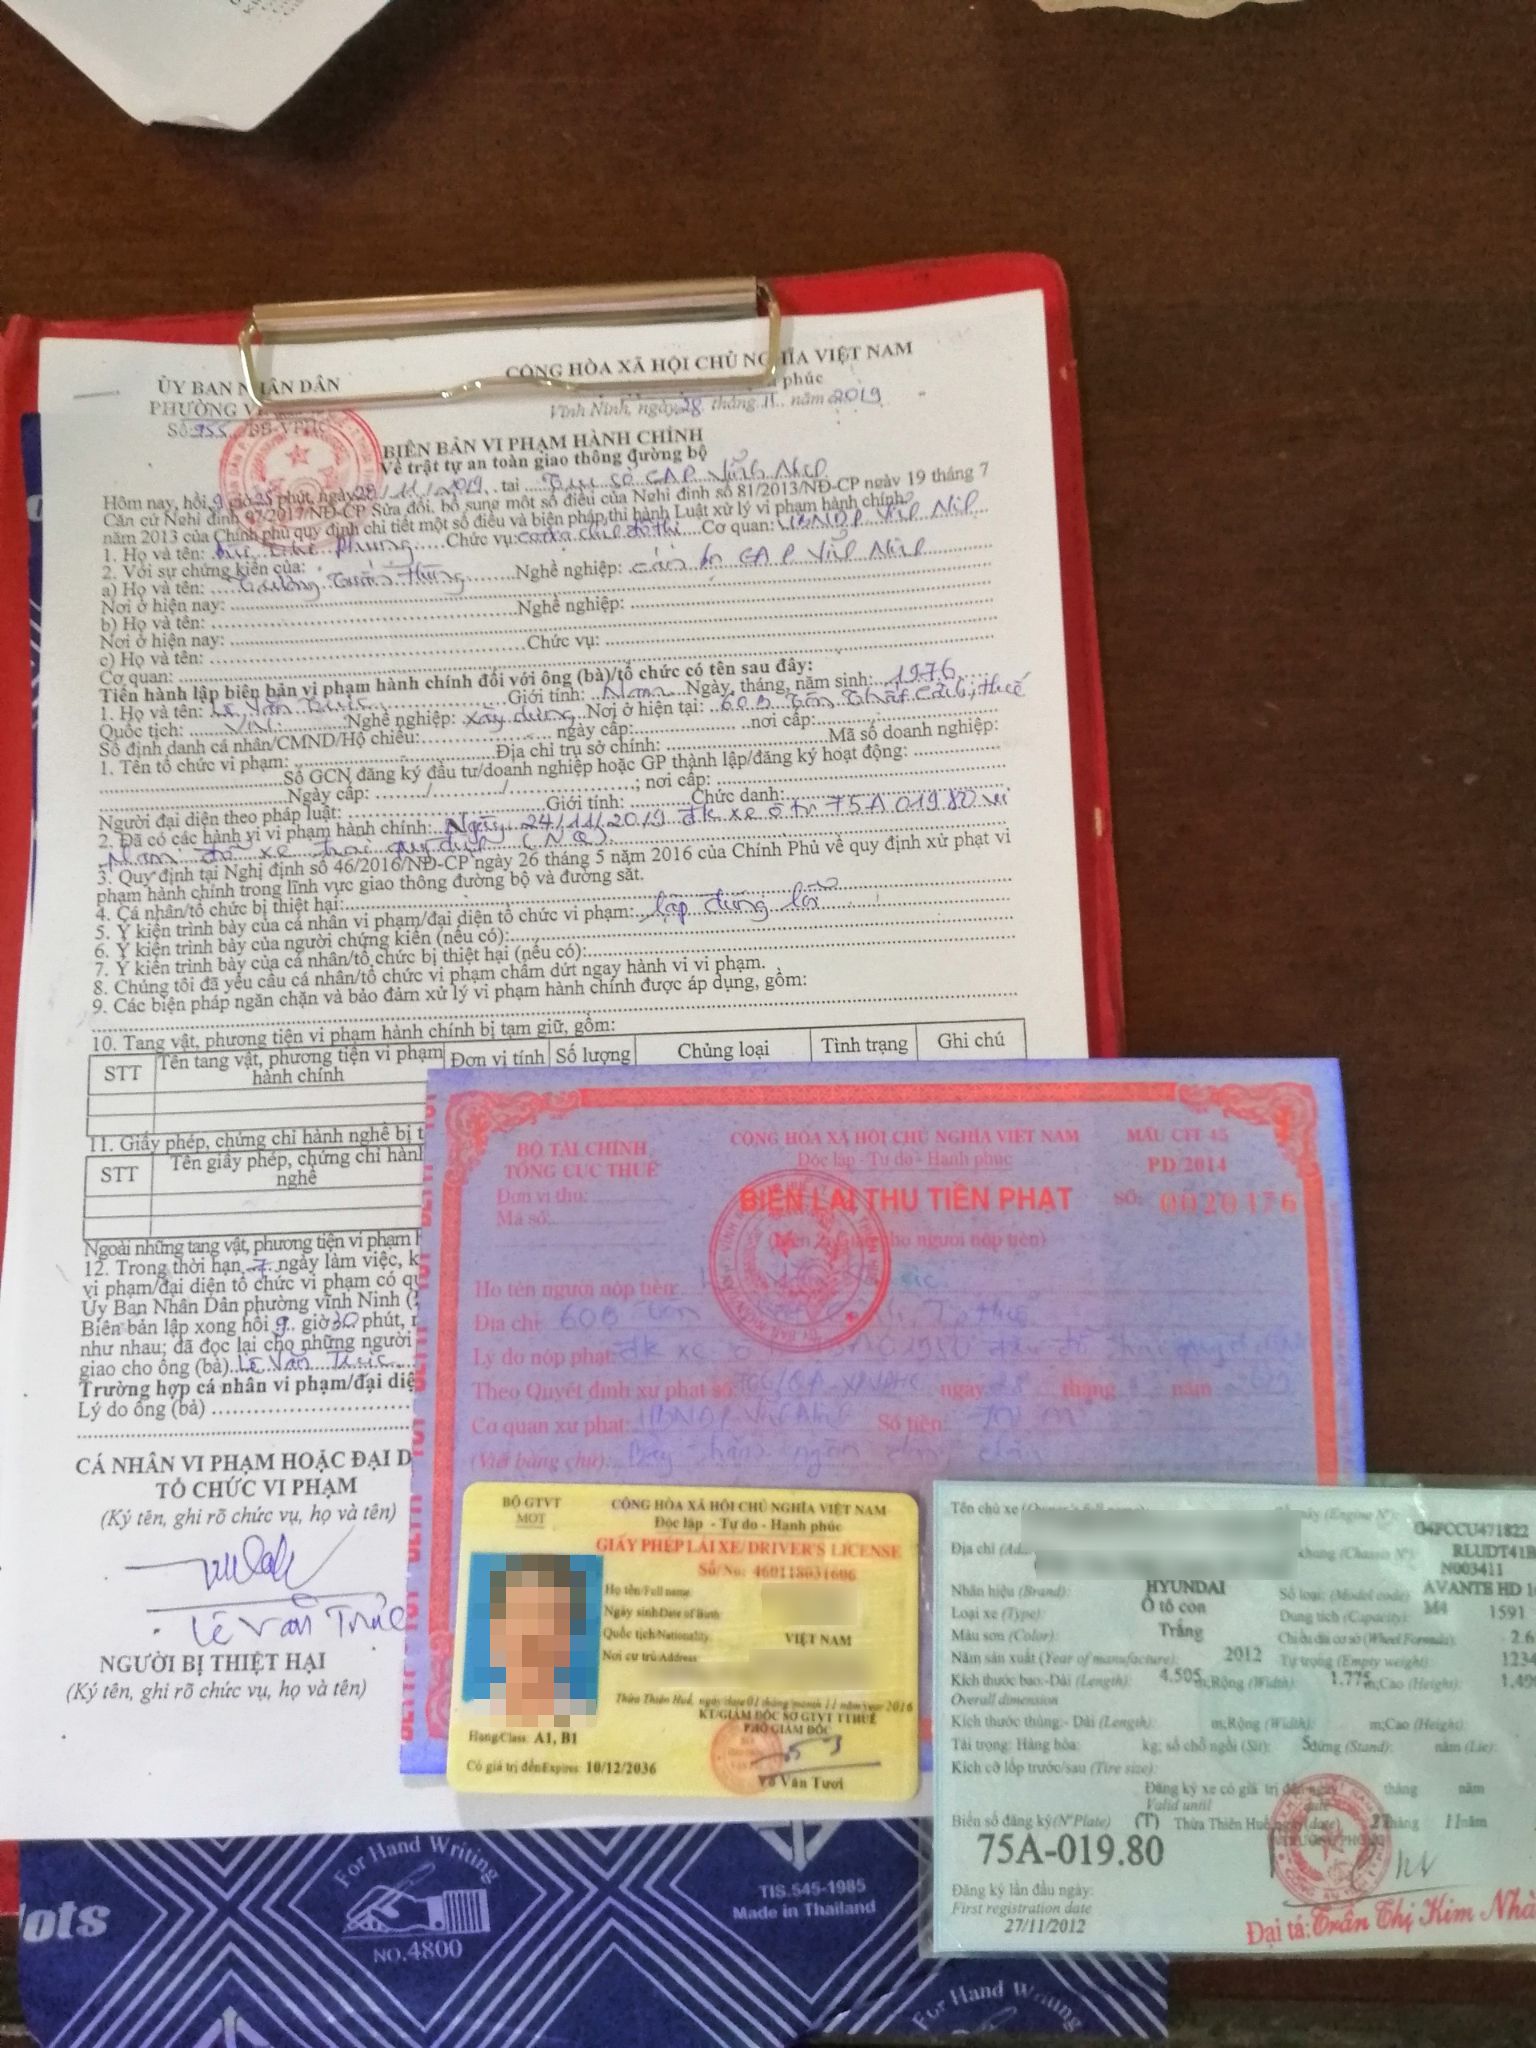 ỦY BAN NHÂN DÂN
PHƯỜNG
CỘNG HÒA XÃ HỘI CHỦ NGHĨA VIỆT NAM
phúc
Số 955 BB-VPHC
Vĩnh Ninh, ngày 28 tháng 11 năm 2019
BIÊN BẢN VI PHẠM HÀNH CHÍNH
Về trật tự an toàn giao thông đường bộ
Hôm nay, hồi 9 giờ 25 phút, ngày 28/11/2019. tại Trụ sở CAP Vĩnh Ninh
Căn cứ Nghị định 97/2017/NĐ-CP Sửa đổi, bổ sung một số điều của Nghị định số 81/2013/NĐ-CP ngày 19 tháng 7
năm 2013 của Chính phủ quy định chi tiết một số điều và biện pháp thi hành Luật xử lý vi phạm hành chính
1. Họ và tên: Phương Chức vụ: đô thị Cơ quan: UBNDP Vĩnh Ninh
2. Với sự chứng kiến của:
a) Họ và tên: Tuấn Thùng Nghề nghiệp: Cán bộ CAP Vĩnh Ninh
Nơi ở hiện nay:
b) Họ và tên: Nghề nghiệp:
Nơi ở hiện nay:
c) Họ và tên: Chức vụ:
Cơ quan:
Tiến hành lập biên bản vi phạm hành chính đối với ông (bà)/tổ chức có tên sau đây:
1. Họ và tên: Lê Văn Thức Giới tính: Nam Ngày, tháng, năm sinh: 1976
Quốc tịch: VN Nghề nghiệp: xây dựng Nơi ở hiện tại: 60B Tôn Thất Cảnh, Huế
Số định danh cá nhân/CMND/Hộ chiếu: ngày cấp: nơi cấp:
1. Tên tổ chức vi phạm: Địa chỉ trụ sở chính: Mã số doanh nghiệp:
Số GCN đăng ký đầu tư/doanh nghiệp hoặc GP thành lập/đăng ký hoạt động:
Ngày cấp: ....../....../......; nơi cấp:
Người đại diện theo pháp luật: Giới tính: Chức danh:
2. Đã có các hành vi vi phạm hành chính: Ngày 24/11/2019 đk xe ô tô 75A 019.80 vi
phạm đỗ xe trái quy định
3. Quy định tại Nghị định số 46/2016/NĐ-CP ngày 26 tháng 5 năm 2016 của Chính Phủ về quy định xử phạt vi
phạm hành chính trong lĩnh vực giao thông đường bộ và đường sắt.
4. Cá nhân/tổ chức bị thiệt hại:
5. Ý kiến trình bày của cá nhân vi phạm/đại diện tổ chức vi phạm: lập đúng lỗi
6. Ý kiến trình bày của người chứng kiến (nếu có):
7. Ý kiến trình bày của cá nhân/tổ chức bị thiệt hại (nếu có):
8. Chúng tôi đã yêu cầu cá nhân/tổ chức vi phạm chấm dứt ngay hành vi vi phạm.
9. Các biện pháp ngăn chặn và bảo đảm xử lý vi phạm hành chính được áp dụng, gồm:
10. Tang vật, phương tiện vi phạm hành chính bị tạm giữ, gồm:
STT Tên tang vật, phương tiện vi phạm hành chính Đơn vị tính Số lượng Chủng loại Tình trạng Ghi chú
11. Giấy phép, chứng chỉ hành nghề bị t
STT Tên giấy phép, chứng chỉ hành nghề
Ngoài những tang vật, phương tiện vi phạm
12. Trong thời hạn 7 ngày làm việc, k
vi phạm/đại diện tổ chức vi phạm có qu
Ủy Ban Nhân Dân phường vĩnh Ninh (
Biên bản lập xong hồi 9 giờ 30 phút,
như nhau; đã đọc lại cho những người
giao cho ông (bà) Lê Văn Thức
Trường hợp cá nhân vi phạm/đại diệ
Lý do ông (bà)
CÁ NHÂN VI PHẠM HOẶC ĐẠI D
TỔ CHỨC VI PHẠM
(Ký tên, ghi rõ chức vụ, họ và tên)
Lê Văn Thức
NGƯỜI BỊ THIỆT HẠI
(Ký tên, ghi rõ chức vụ, họ và tên)
BỘ TÀI CHÍNH
TỔNG CỤC THUẾ
CỘNG HÒA XÃ HỘI CHỦ NGHĨA VIỆT NAM
Độc lập - Tự do - Hạnh phúc
MẪU CTT 45
PD/2014
Đơn vị thu:
Mã số:
BIÊN LAI THU TIỀN PHẠT
SỐ: 0020176
cho người nộp tiền)
Họ tên người nộp tiền:
Địa chỉ: 60B
Lý do nộp phạt: đk xe
Theo Quyết định xử phạt số: ngày 28 tháng năm
Cơ quan xử phạt: UBNDP Vĩnh Ninh Số tiền:
(Viết bằng chữ): Bảy trăm ngàn đồng chẵn
BỘ GTVT
MOT
CỘNG HÒA XÃ HỘI CHỦ NGHĨA VIỆT NAM
Độc lập - Tự do - Hạnh phúc
GIẤY PHÉP LÁI XE/DRIVER'S LICENSE
Số/No: 460118031606
Họ tên/Full name
Ngày sinh/Date of Birth
Quốc tịch/Nationality VIỆT NAM
Nơi cư trú/Address
Thừa Thiên Huế, ngày/date 01 tháng/month 11 năm/year 2016
KT/GIÁM ĐỐC SỞ GTVT TTHUẾ
PHÓ GIÁM ĐỐC
Hạng/Class: A1, B1
Có giá trị đến/Expires: 10/12/2036
Võ Văn Tươi
Tên chủ xe (Owner's full name): máy (Engine N°): G4FCCU471822
Địa chỉ khung (Chassis N°): RLUDT41B
N003411
Nhãn hiệu (Brand): HYUNDAI Số loại: (Model code): AVANTE HD 1
M4
Loại xe (Type): Ô tô con Dung tích (Capacity): 1591
Màu sơn (Color): Trắng Chiều dài cơ sở (Wheel Formula): 2.6
Năm sản xuất (Year of manufacture): 2012 Tự trọng (Empty weight): 1234
Kích thước bao:-Dài (Length): 4.505 m;Rộng (Width): 1.775 m;Cao (Height): 1,490
Overall dimension
Kích thước thùng:- Dài (Length): m,Rộng (Width): m;Cao (Height):
Tải trọng: Hàng hóa: kg; số chỗ ngồi (Sit): 5 đứng (Stand): nằm (Lie):
Kích cỡ lốp trước/sau (Tire size):
Đăng ký xe có giá trị đến ngày tháng năm
Valid until date
Biển số đăng ký(N°Plate) (T) Thừa Thiên Huế, ngày (date) 27 tháng 11 năm
75A-019.80
Đăng ký lần đầu ngày:
First registration date
27/11/2012
Đại tá: Trần Thị Kim Nhã
For Hand Writing
NO.4800
TIS.545-1985
Made in Thailand
lots
For Hand Writing